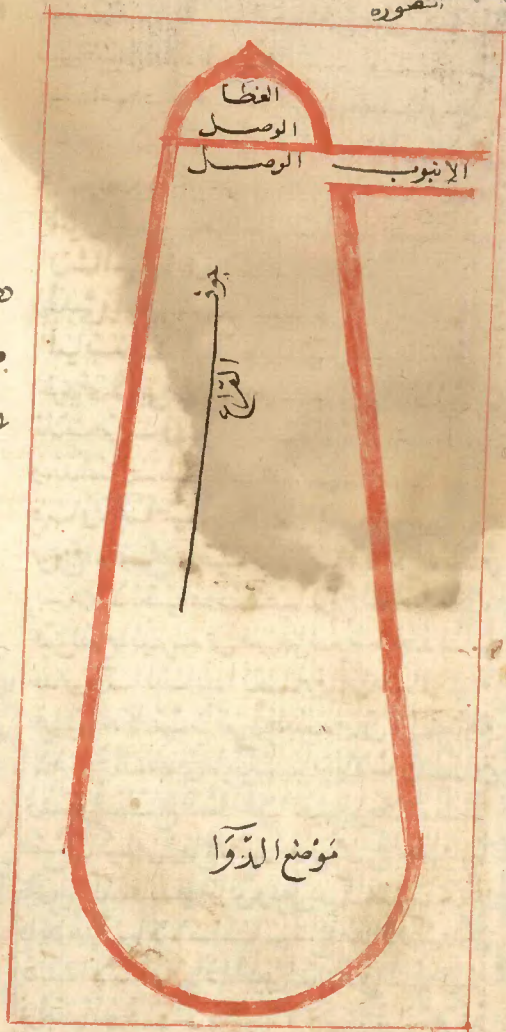 الصورة
الغطا
الوصل
الوصل
الانبوب
جوف
القراع
موضع الدوا